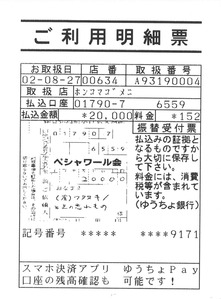 ご利用明細票
お取扱日 店番 取扱番号
02-08-27 00634 A93190004
取扱店 ホンコマゴメニ
払込口座 01790-7 6559
払込金額 *20,000 料金 *152
振替受付票
払込みの証拠と
なるものですから
大切に保存して
下さい。
料金には、消費
税等が含まれて
います。
(ゆうちょ銀行)
ペシャワール会
20000
記号番号 ***** ****9171
スマホ決済アプリ ゆうちょPay
口座の残高確認も 可能です!